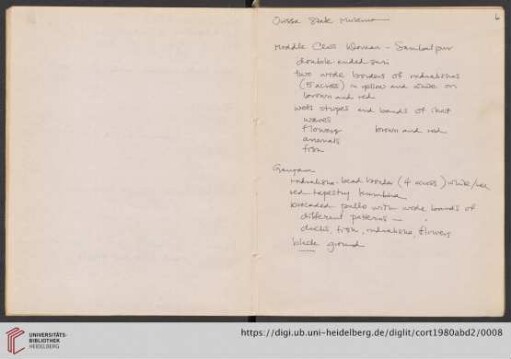 Orissa State Museum
6
Middle Class Woman - Sambalpur
double ended sari
two wide borders of rudrakshas
(5 across) in yellow and white on
brown and red
weft stripes and bands of ikat
waves
flowers brown and red
animals
fish
Ganjam
rudraksha-bead border (4 across) white/red
red tapestry kumbha
brocaded pallo with wide bands of
different patterns -
ducks, fish, rudraksha, flowers
black ground
UNIVERSITÄTS-
BIBLIOTHEK
HEIDELBERG
https://digi.ub.uni-heidelberg.de/diglit/cort1980abd2/0008